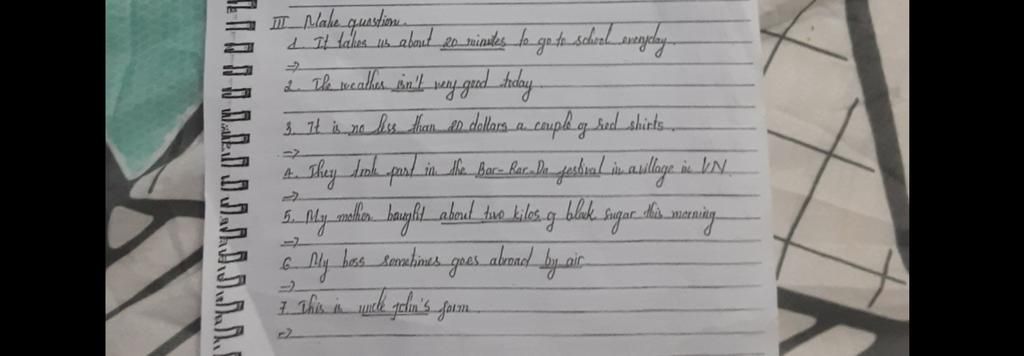 III Make question.
1. It takes us about 20 minutes to go to school everyday.
=>
2. The weather isn't very good today
3. It is no less than 20 dollars a couple of red shirts.
=>
4. They took part in the Bar-Bar-Do festival in a village in VN.
=>
5. My mother baught about two kilos of black sugar this morning
=>
6. My boss sometimes goes abroad by air.
=>
7. This is uncle John's farm.
=>